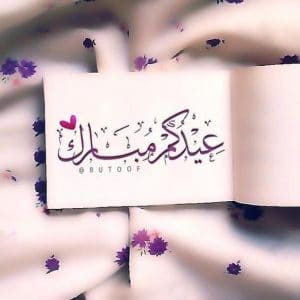 عِيْدُكُم مُبَارَك
@BUTOOF